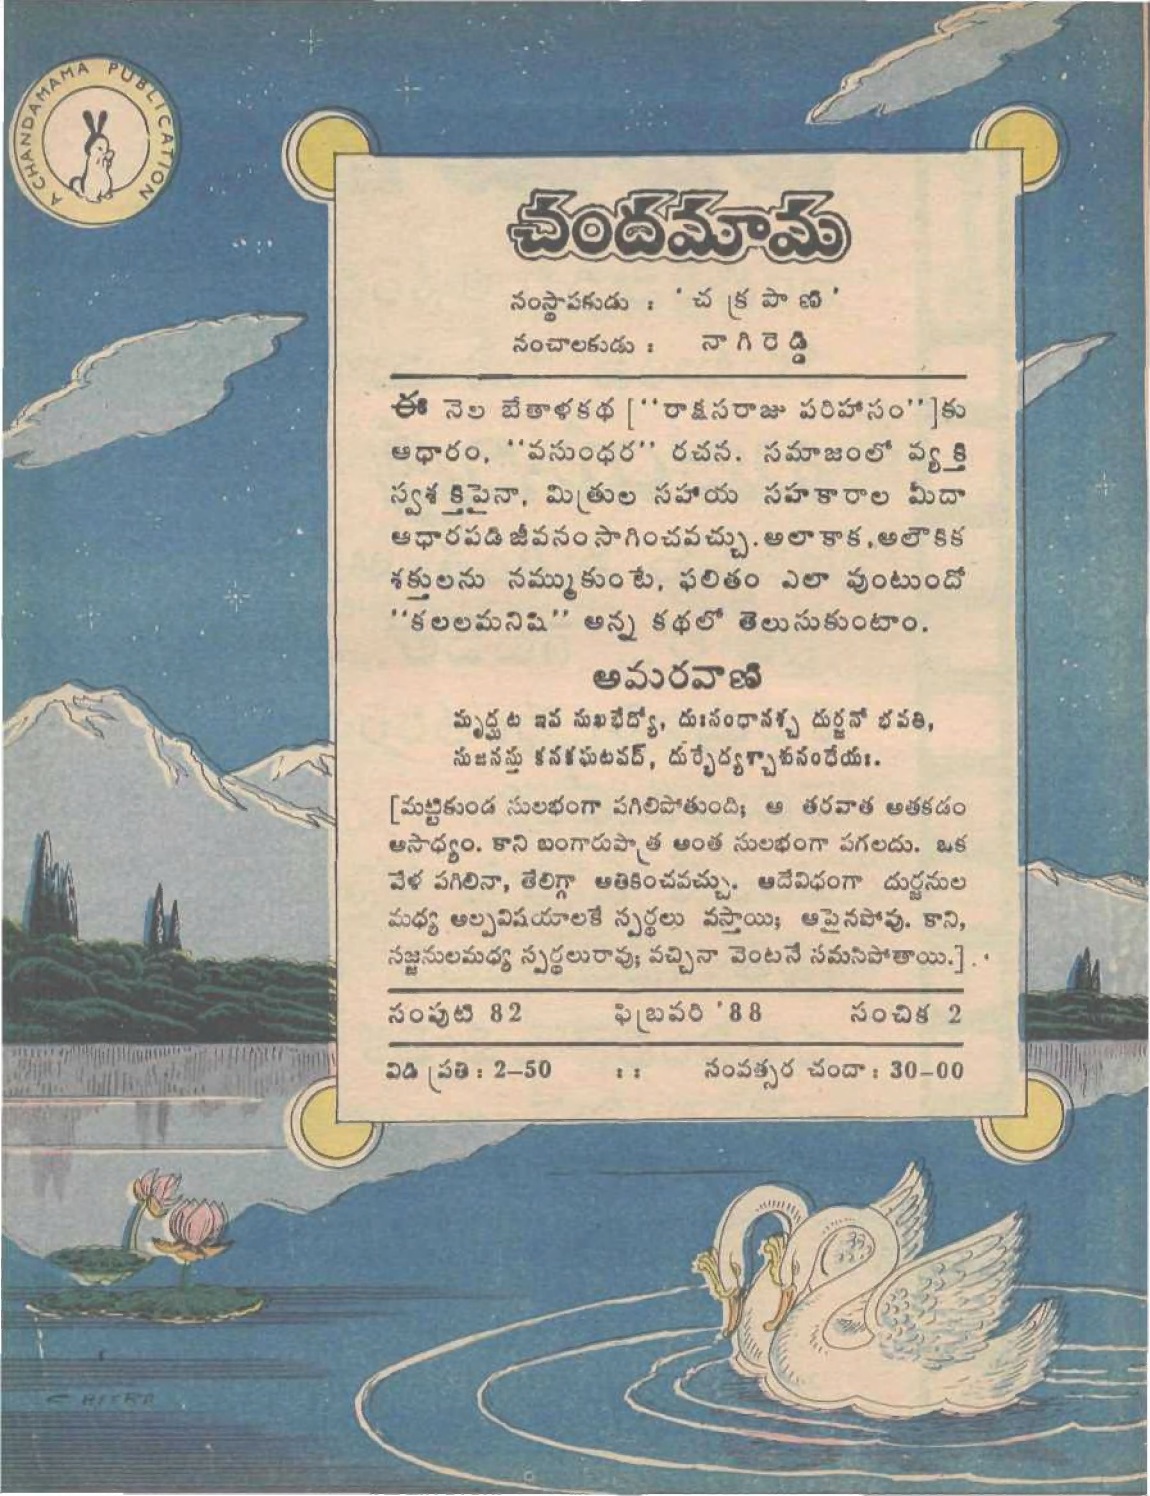 A CHANDAMAMA PUBLICATION
చందమామ
సంస్థాపకుడు : 'చక్రపాణి'
సంచాలకుడు : నాగిరెడ్డి
ఈ నెల బేతాళకథ [“రాక్షసరాజు పరిహాసం”]కు
ఆధారం, “వసుంధర” రచన. సమాజంలో వ్యక్తి
స్వశక్తిపైనా, మిత్రుల సహాయ సహకారాల మీదా
ఆధారపడి జీవనం సాగించవచ్చు. అలా కాక, అలౌకిక
శక్తులను నమ్ముకుంటే, ఫలితం ఎలా వుంటుందో
“కలలమనిషి” అన్న కథలో తెలుసుకుంటాం.
అమరవాణి
మృద్ఘట ఇవ సుఖభేద్యో, దుఃసంధానశ్చ దుర్జనో భవతి,
సుజనస్తు కనకఘటవద్, దుర్భేద్యశ్చాశుసంధేయః.
[మట్టికుండ సులభంగా పగిలిపోతుంది; ఆ తరవాత అతకడం
అసాధ్యం. కాని బంగారుపాత్ర అంత సులభంగా పగలదు. ఒక
వేళ పగిలినా, తేలిగ్గా అతికించవచ్చు. అదేవిధంగా దుర్జనుల
మధ్య అల్పవిషయాలకే స్పర్థలు వస్తాయి; ఆపైనపోవు. కాని,
సజ్జనులమధ్య స్పర్థలురావు; వచ్చినా వెంటనే సమసిపోతాయి.]
సంపుటి 82 ఫిబ్రవరి '88 సంచిక 2
విడి ప్రతి : 2–50 : : సంవత్సర చందా : 30–00
CHITRA